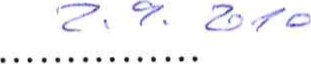 2.9.2010
...............